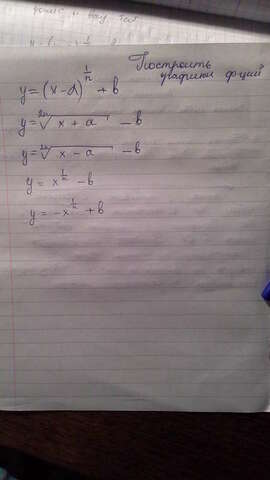 Построить
графики ф-ций
y = (x - a)^{1/n} + b
y = \sqrt[2n]{x + a} - b
y = \sqrt[2n]{x - a} - b
y = x^{1/n} - b
y = -x^{1/n} + b